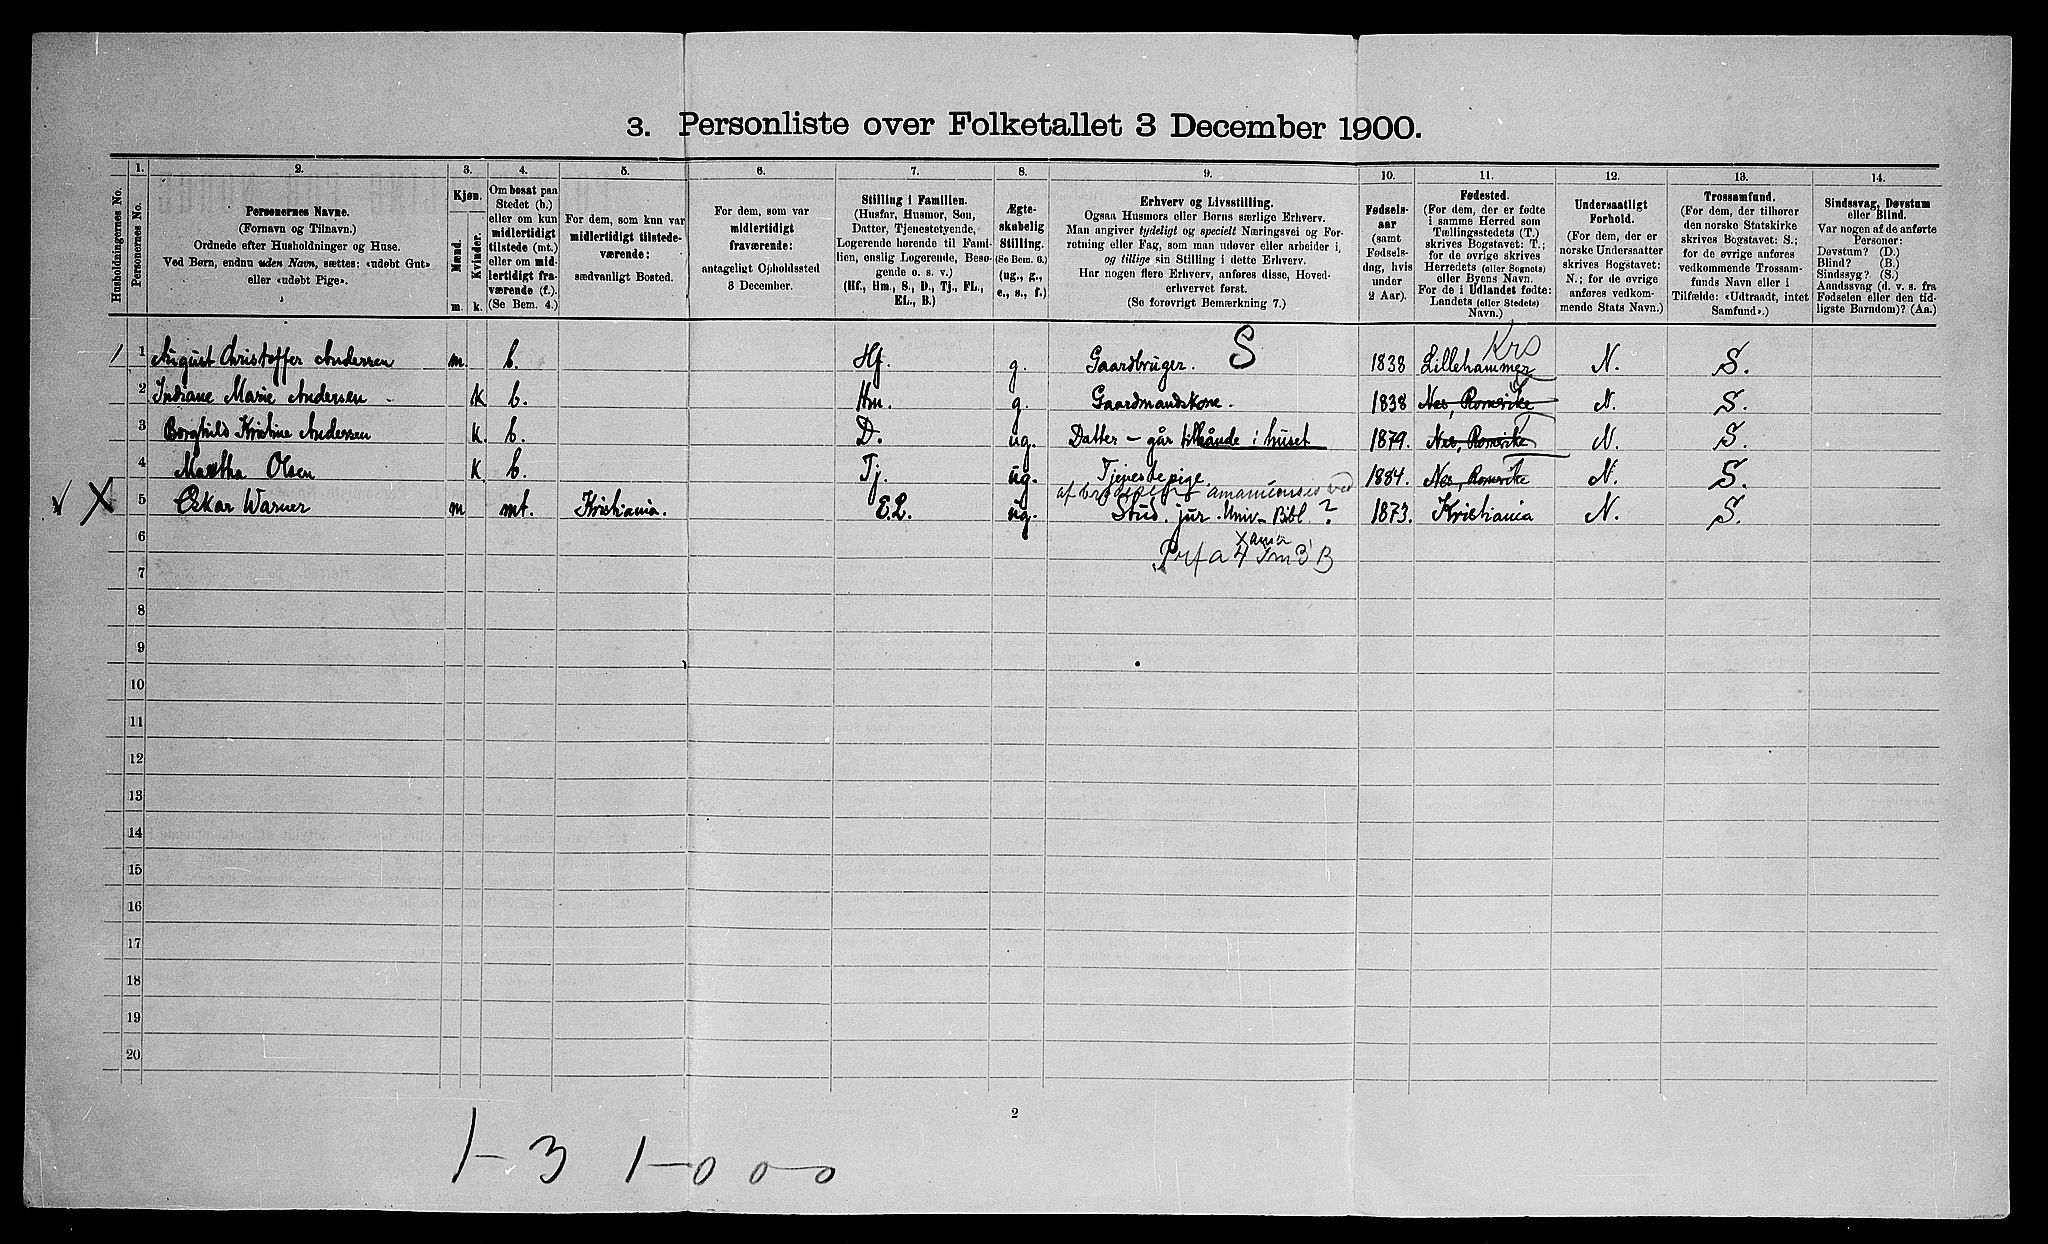 3. Personliste over Folketallet 3 December 1900.
Husholdningernes No.
1.
Personernes No.
2.
Personernes Navne.
(Fornavn og Tilnavn.)
Ordnede efter Husholdninger og Huse.
Ved Børn, endnu uden Navn, sættes: «udøbt Gut»
eller «udøbt Pige».
3.
Kjøn.
Mænd.
Kvinder.
m. k.
4.
Om bosat paa
Stedet (b.)
eller om kun
midlertidigt
tilstede (mt.)
eller om mid-
lertidigt fra-
værende (f.).
(Se Bem. 4.)
5.
For dem, som kun var
midlertidigt tilstede-
værende:
sædvanligt Bosted.
6.
For dem, som var
midlertidigt
fraværende:
antageligt Opholdssted
3 December.
7.
Stilling i Familien.
(Husfar, Husmor, Søn,
Datter, Tjenestetyende,
Logerende hørende til Fami-
lien, enslig Logerende, Besø-
gende o. s. v.)
(Hf., Hm., S., D., Tj., FL.,
EL., B.)
8.
Ægte-
skabelig
Stilling.
(Se Bem. 6.)
(ug., g.,
e., s., f.)
9.
Erhverv og Livsstilling.
Ogsaa Husmors eller Børns særlige Erhverv.
Man angiver tydeligt og specielt Næringsvei og For-
retning eller Fag, som man udøver eller arbeider i,
og tillige sin Stilling i dette Erhverv.
Har nogen flere Erhverv, anføres disse, Hoved-
erhvervet først.
(Se forøvrigt Bemærkning 7.)
10.
Fødsels-
aar
(samt
Fødsels-
dag, hvis
under
2 Aar).
11.
Fødested.
(For dem, der er fødte
i samme Herred som
Tællingsstedets (T.)
skrives Bogstavet: T.;
for de øvrige skrives
Herredets (eller Sognets)
eller Byens Navn.
For de i Udlandet fødte:
Landets (eller Stedets)
Navn.)
12.
Undersaatligt
Forhold.
(For dem, der er
norske Undersaatter
skrives Bogstavet:
N.; for de øvrige
anføres vedkom-
mende Stats Navn.)
13.
Trossamfund.
(For dem, der tilhører
den norske Statskirke
skrives Bogstavet: S.;
for de øvrige anføres
vedkommende Trossam-
funds Navn eller i
Tilfælde: «Udtraadt, intet
Samfund».)
14.
Sindssvag, Døvstum
eller Blind.
Var nogen af de anførte
Personer:
Døvstum? (D.)
Blind? (B.)
Sindssyg? (S.)
Aandssvag (d. v. s. fra
Fødselen eller den tid-
ligste Barndom)? (Aa.)
1 1 August Christoffer Andersen m. b. Hf. g. Gaardbruger. S 1838 Lillehammer Krs N. S.
2 Indiane Marie Andersen k b. Hm. g. Gaardmandskone. 1838 Nes, Romerike T N. S.
3 Borghild Kristine Andersen k. b. D. ug. Datter – går tilhånde i huset 1879. Nes, Romerike T N. S.
4 Martha Olsen k b. Tj. ug. Tjenestepige. 1884. Nes, Romerike T N. S.
amanuenses ved
X 5 Oskar Warner m mt. Kristiania. E.L. ug. Stud. jur. Univ. Bibl. ? 1873. Kristiania N. S.
6
7
8
9
10
11
12
13
14
15
16
17
18
19
20
2
1 - 3 1 - 0 0 - 0